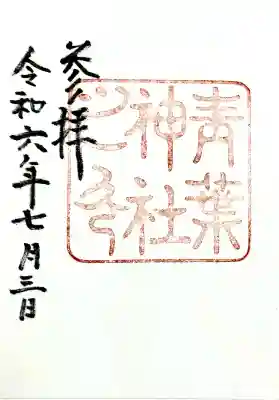 参拝
青葉
神社
令和六年七月三日